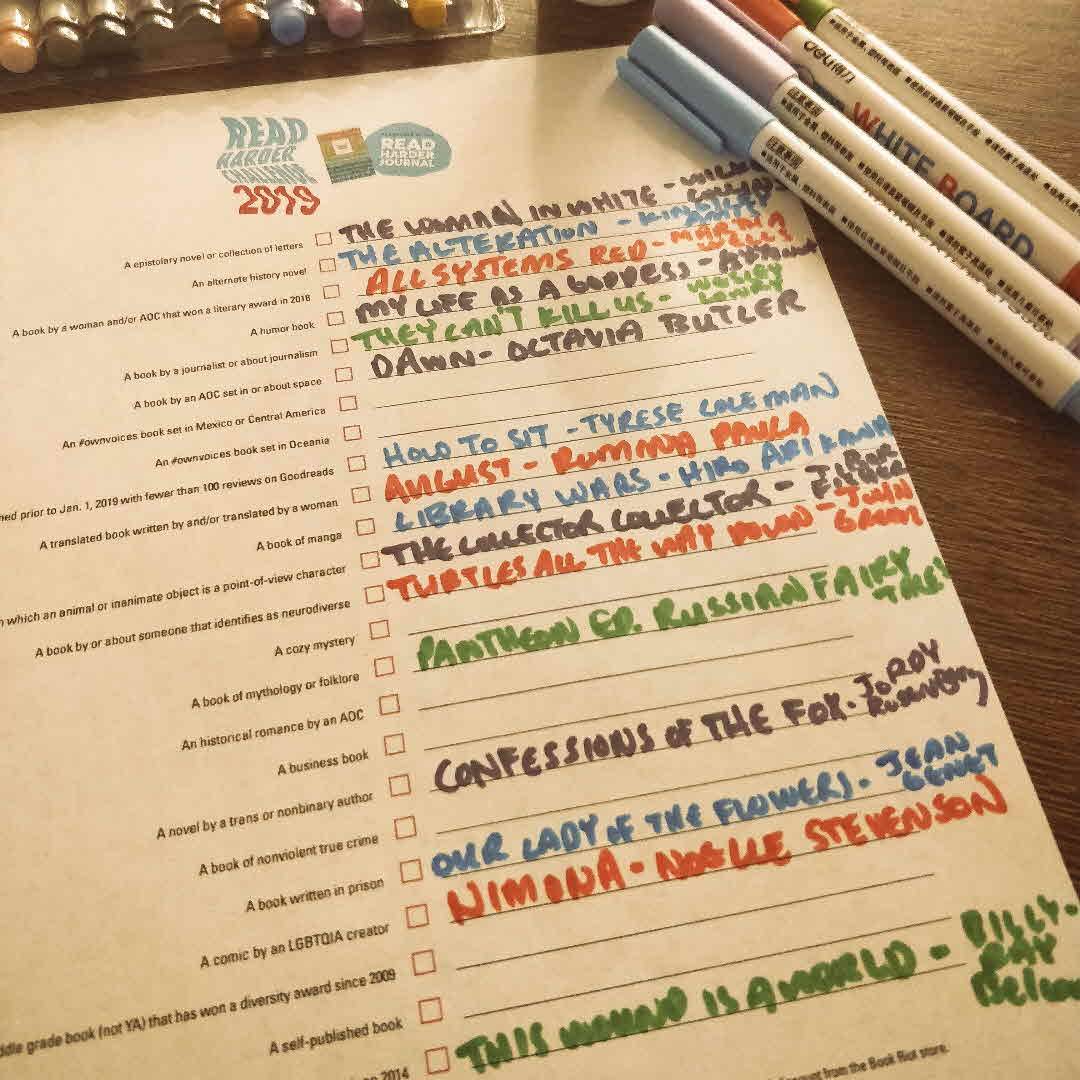 READ
HARDER
CHALLENGE
2019
READ
HARDER
JOURNAL
A epistolary novel or collection of letters THE WOMAN IN WHITE -
An alternate history novel THE ALTERATION -
A book by a woman and/or AOC that won a literary award in 2018 ALL SYSTEMS RED - MARTHA WELLS
A humor book MY LIFE AS A GODDESS -
A book by a journalist or about journalism THEY CAN'T KILL US - WESLEY LOWERY
A book by an AOC set in or about space DAWN - OCTAVIA BUTLER
An #ownvoices book set in Mexico or Central America
An #ownvoices book set in Oceania
prior to Jan. 1, 2019 with fewer than 100 reviews on Goodreads HOW TO SIT - TYRESE COLEMAN
A translated book written by and/or translated by a woman AUGUST - ROMINA PAULA
A book of manga LIBRARY WARS - HIRO ARIKAWA
which an animal or inanimate object is a point-of-view character THE COLLECTOR COLLECTOR - TIBOR FISCHER
A book by or about someone that identifies as neurodiverse TURTLES ALL THE WAY DOWN - JOHN GREEN
A cozy mystery
A book of mythology or folklore PANTHEON ED. RUSSIAN FAIRY TALES
An historical romance by an AOC
A business book
A novel by a trans or nonbinary author CONFESSIONS OF THE FOX - JORDY ROSENBERG
A book of nonviolent true crime
A book written in prison OUR LADY OF THE FLOWERS - JEAN GENET
A comic by an LGBTQIA creator NIMONA - NOELLE STEVENSON
grade book (not YA) that has won a diversity award since 2009
A self-published book
2014 THIS WOUND IS A WORLD - BILLY-RAY
from the Book Riot store.
deli得力
WHITE BOARD